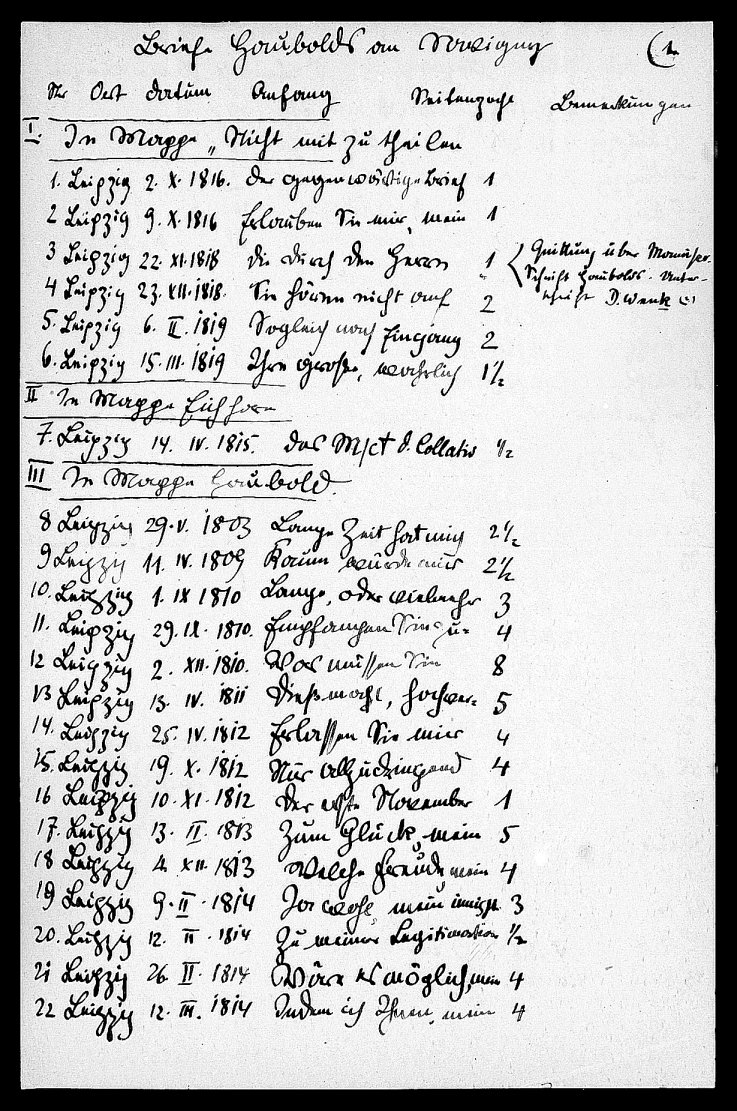 Briefe Haubolds an Savigny (1.
Nr Ort Datum Anfang Seitenzahl Bemerkungen
I. In Mappe „Nicht mit zu theilen
1. Leipzig 2. X. 1816. Der gegenwärtige Brief 1
2 Leipzig 9. X. 1816 Erlauben Sie mir, mein 1
3 Leipzig 22. XI. 1818 Die durch den Herrn 1 Quittung über
Schrift Haubolds. Unter-
4 Leipzig 23. XII. 1818. Sie hören nicht auf 2 schrift D. Wenk
5. Leipzig 6. II. 1819 Sogleich nach Eingang 2
6. Leipzig 15. III. 1819 Ihre große, wahrlich 1 1/2
II In Mappe Eichhorn
7. Leipzig 14. IV. 1815. Das Msct d. Collatio 1/2
III In Mappe Haubold.
8 Leipzig 29. V. 1803 Lange Zeit hat mich 2 1/2
9 Leipzig 11. IV. 1809 Kaum würde mir 2 1/2
10. Leipzig 1. IX 1810 Lange, oder vielmehr 3
11. Leipzig 29. IX. 1810. Empfangen Sie, u- 4
12 Leipzig 2. XII. 1810. Was müssen Sie 8
13 Leipzig 13. IV. 1811 Dieß macht, hochver- 5
14. Leipzig 25. IV. 1812 Erlassen Sie mir 4
15. Leipzig 19. X. 1812 Nur allzudringend 4
16 Leipzig 10. XI. 1812 Der erste November 1
17. Leipzig 13. II. 1813 Zum Glück, mein 5
18 Leipzig 4. XII. 1813 Welche Freude, mein 4
19 Leipzig 9. II. 1814 Ja wohl, mein innigst 3
20. Leipzig 12. II. 1814 Zu meiner Legitimation 1/2
21 Leipzig 26. II. 1814 Wäre es möglich, mein 4
22 Leipzig 12. III. 1814 Indem ich Ihnen, mein 4